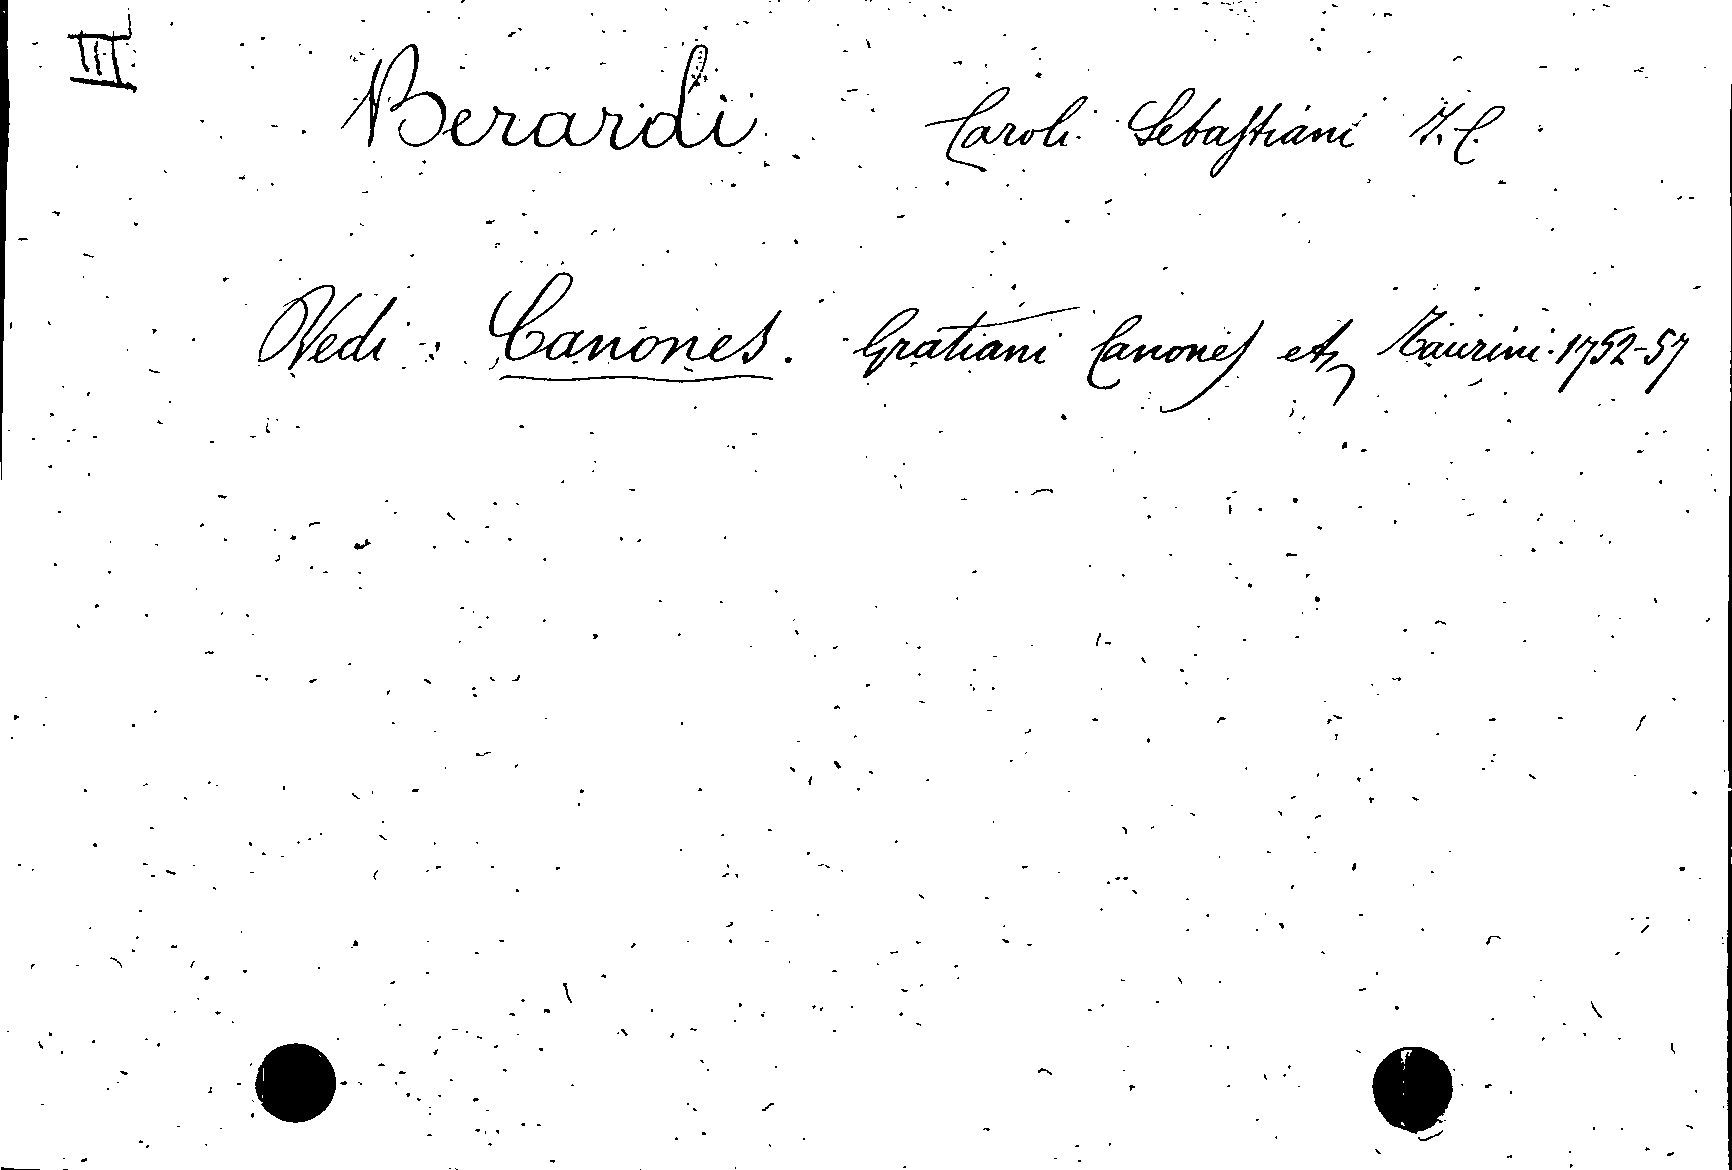 III
Berardi Caroli Sebastiani I. C.
Vedi: Canones. Gratiani Canones etc Taurini. 1752-57